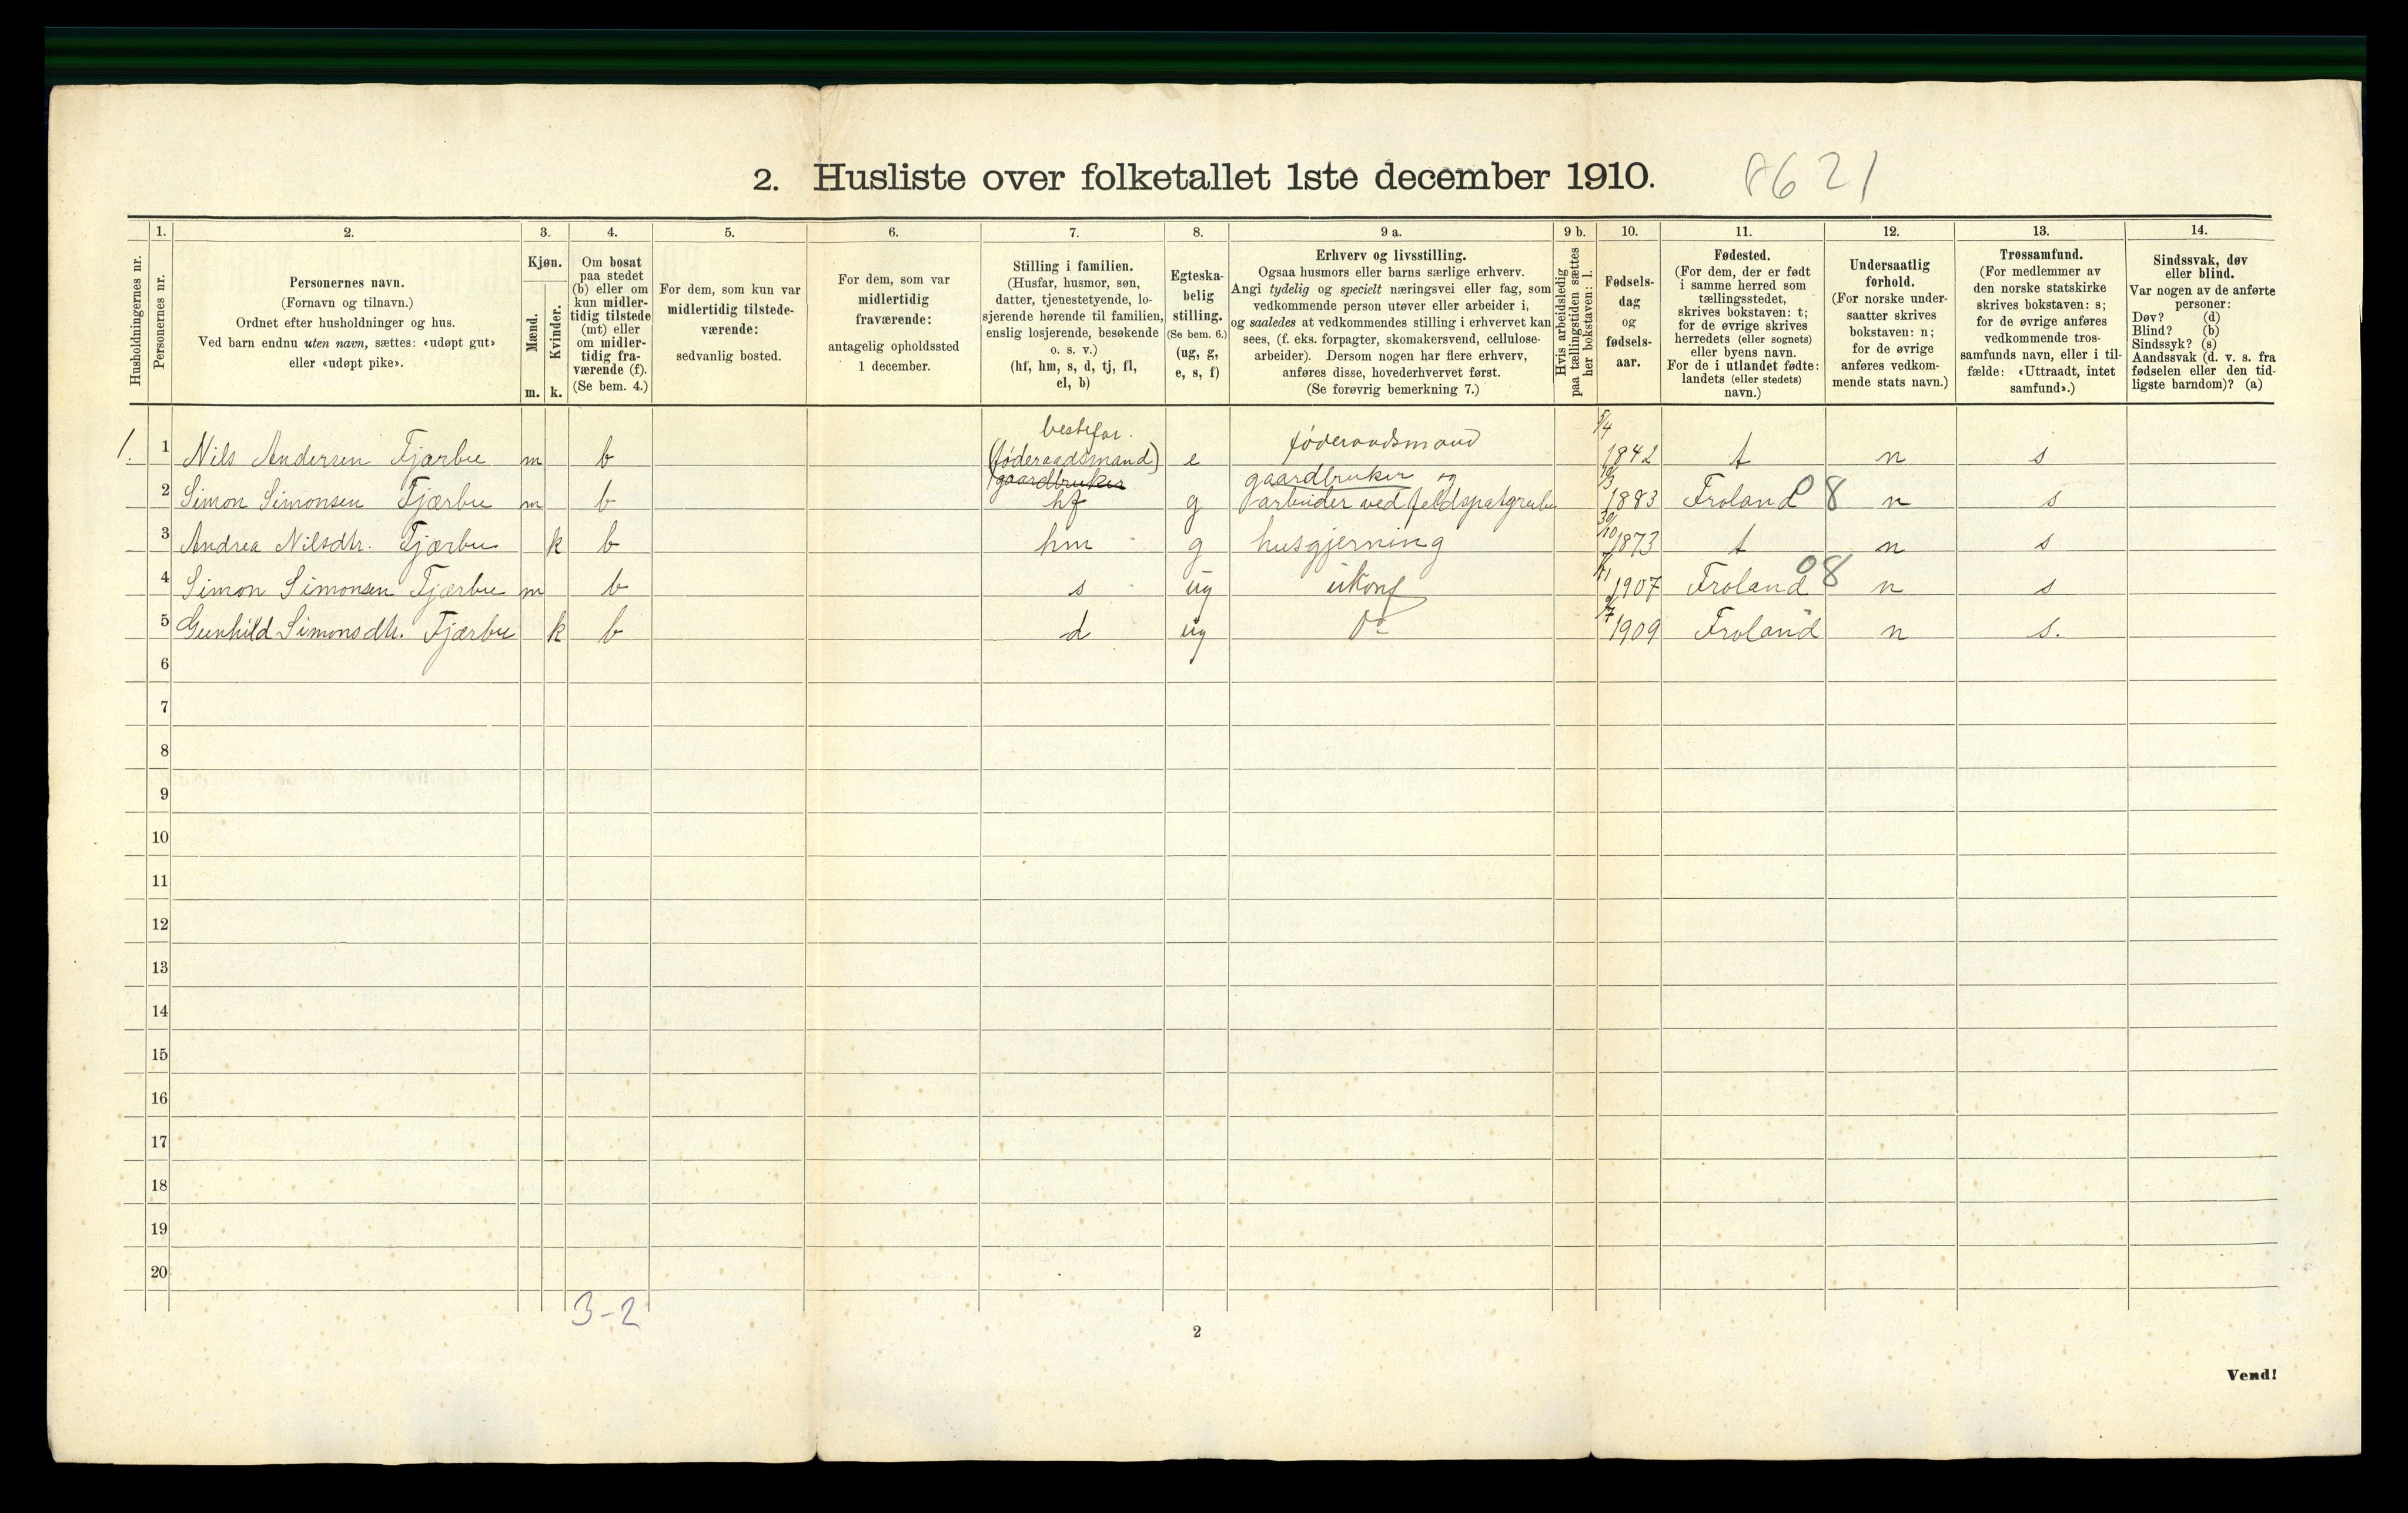 2. Husliste over folketallet 1ste december 1910. 8621
Husholdningernes nr.
1. Personernes nr.
2. Personernes navn. (Fornavn og tilnavn.) Ordnet efter husholdninger og hus. Ved barn endnu uten navn, sættes: «udøpt gut» eller «udøpt pike».
3. Kjøn. Mænd. Kvinder. m. k.
4. Om bosat paa stedet (b) eller om kun midlertidig tilstede (mt) eller om midlertidig fraværende (f). (Se bem. 4.)
5. For dem, som kun var midlertidig tilstedeværende: sedvanlig bosted.
6. For dem, som var midlertidig fraværende: antagelig opholdssted 1 december.
7. Stilling i familien. (Husfar, husmor, søn, datter, tjenestetyende, losjerende hørende til familien, enslig losjerende, besøkende o. s. v.) (hf, hm, s, d, tj, fl, el, b)
8. Egteskabelig stilling. (Se bem. 6.) (ug, g, e, s, f)
9 a. Erhverv og livsstilling. Ogsaa husmors eller barns særlige erhverv. Angi tydelig og specielt næringsvei eller fag, som vedkommende person utøver eller arbeider i, og saaledes at vedkommendes stilling i erhvervet kan sees, (f. eks. forpagter, skomakersvend, cellulosearbeider). Dersom nogen har flere erhverv, anføres disse, hovederhvervet først. (Se forøvrig bemerkning 7.)
9 b. Hvis arbeidsledig paa tællingstiden sættes her bokstaven: l.
10. Fødselsdag og fødselsaar.
11. Fødested. (For dem, der er født i samme herred som tællingsstedet, skrives bokstaven: t; for de øvrige skrives herredets (eller sognets) eller byens navn. For de i utlandet fødte: landets (eller stedets) navn.)
12. Undersaatlig forhold. (For norske undersaatter skrives bokstaven: n; for de øvrige anføres vedkommende stats navn.)
13. Trossamfund. (For medlemmer av den norske statskirke skrives bokstaven: s; for de øvrige anføres vedkommende trossamfunds navn, eller i tilfælde: «Uttraadt, intet samfund».)
14. Sindssvak, døv eller blind. Var nogen av de anførte personer: Døv? (d) Blind? (b) Sindssyk? (s) Aandssvak (d. v. s. fra fødselen eller den tidligste barndom)? (a)
1. 1 Nils Andersen Fjærbu m b bestefar. (føderaadsmand) e føderaadsmand 5/4 1842 t n s
2 Simon Simonsen Fjærbu m b gaardbruker hf g gaardbruker og arbeider ved feldspatgrube 1883 Froland 08 n s
3 Andrea Nilsdtr. Fjærbu k b hm g husgjerning 30/10 1873 t n s
4 Simon Simonsen Fjærbu m b s ug ukonf 1907 Froland 08 n s
5 Gunhild Simonsdtr. Fjærbu k b d ug Do 1909 Froland n s.
6
7
8
9
10
11
12
13
14
15
16
17
18
19
20
3-2
2
Vend!